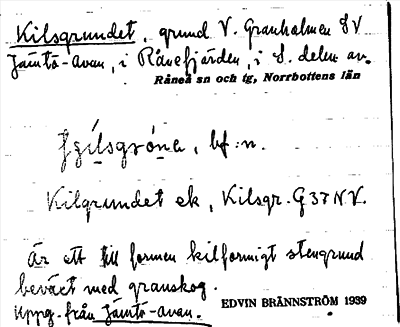 Kilsgrundet, grund V. Granholmen SV
Jämtö-avan, i Rånefjärden, i S. delen av.
Råneå sn och tg, Norrbottens län
bf. n.
Kilgrundet ek, Kilsgr. G 37 N.V.
Är ett till formen kilformigt stengrund
beväxt med granskog.
Uppg. från Jämtö-avan.
EDVIN BRÄNNSTRÖM 1939